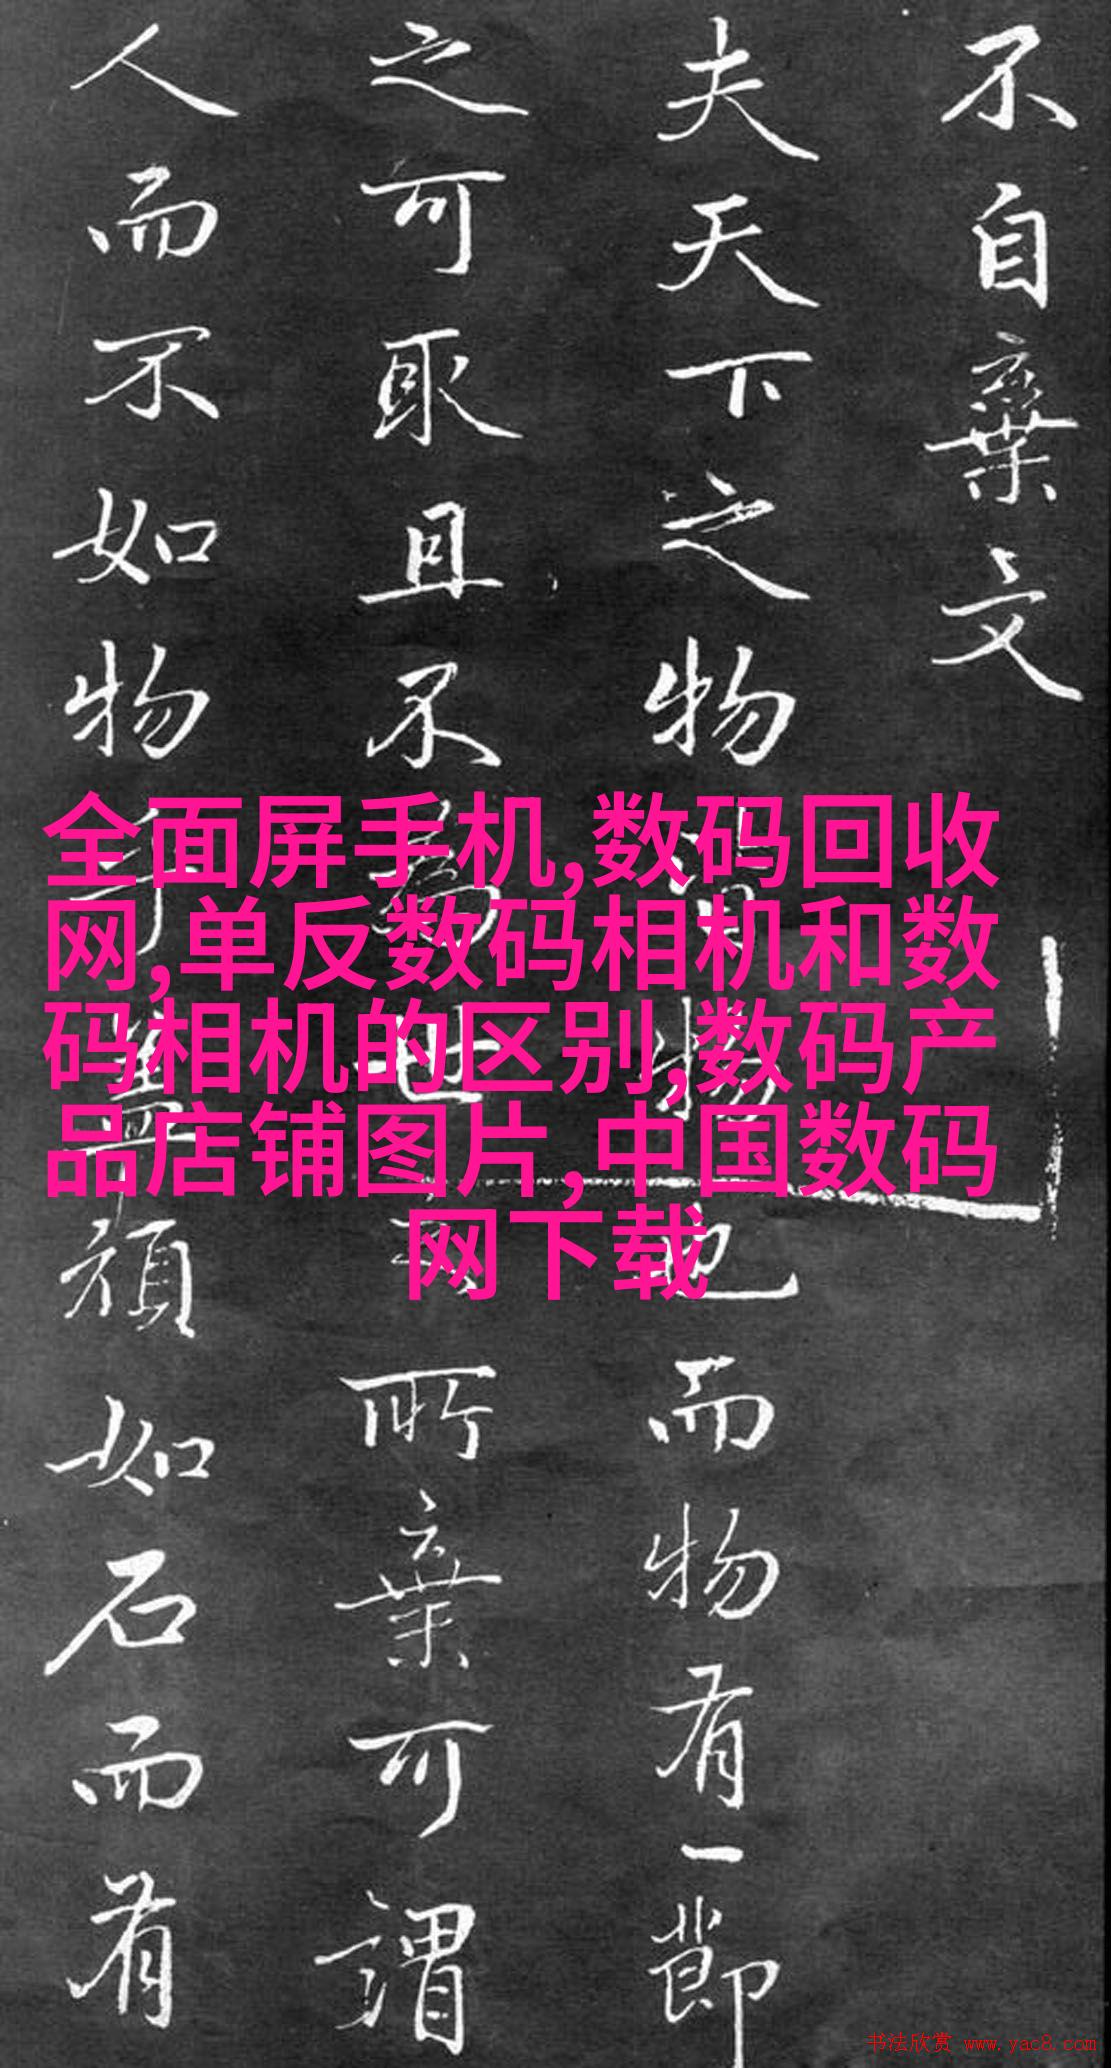 不自棄文
夫天下之物皆物也而物有一節
之可取且不為世之所棄可謂
人而不如物乎蓋頑如石而有
全面屏手机,数码回收
网,单反数码相机和数
码相机的区别,数码产
品店铺图片,中国数码
网下载
书法欣赏 www.yac8.com